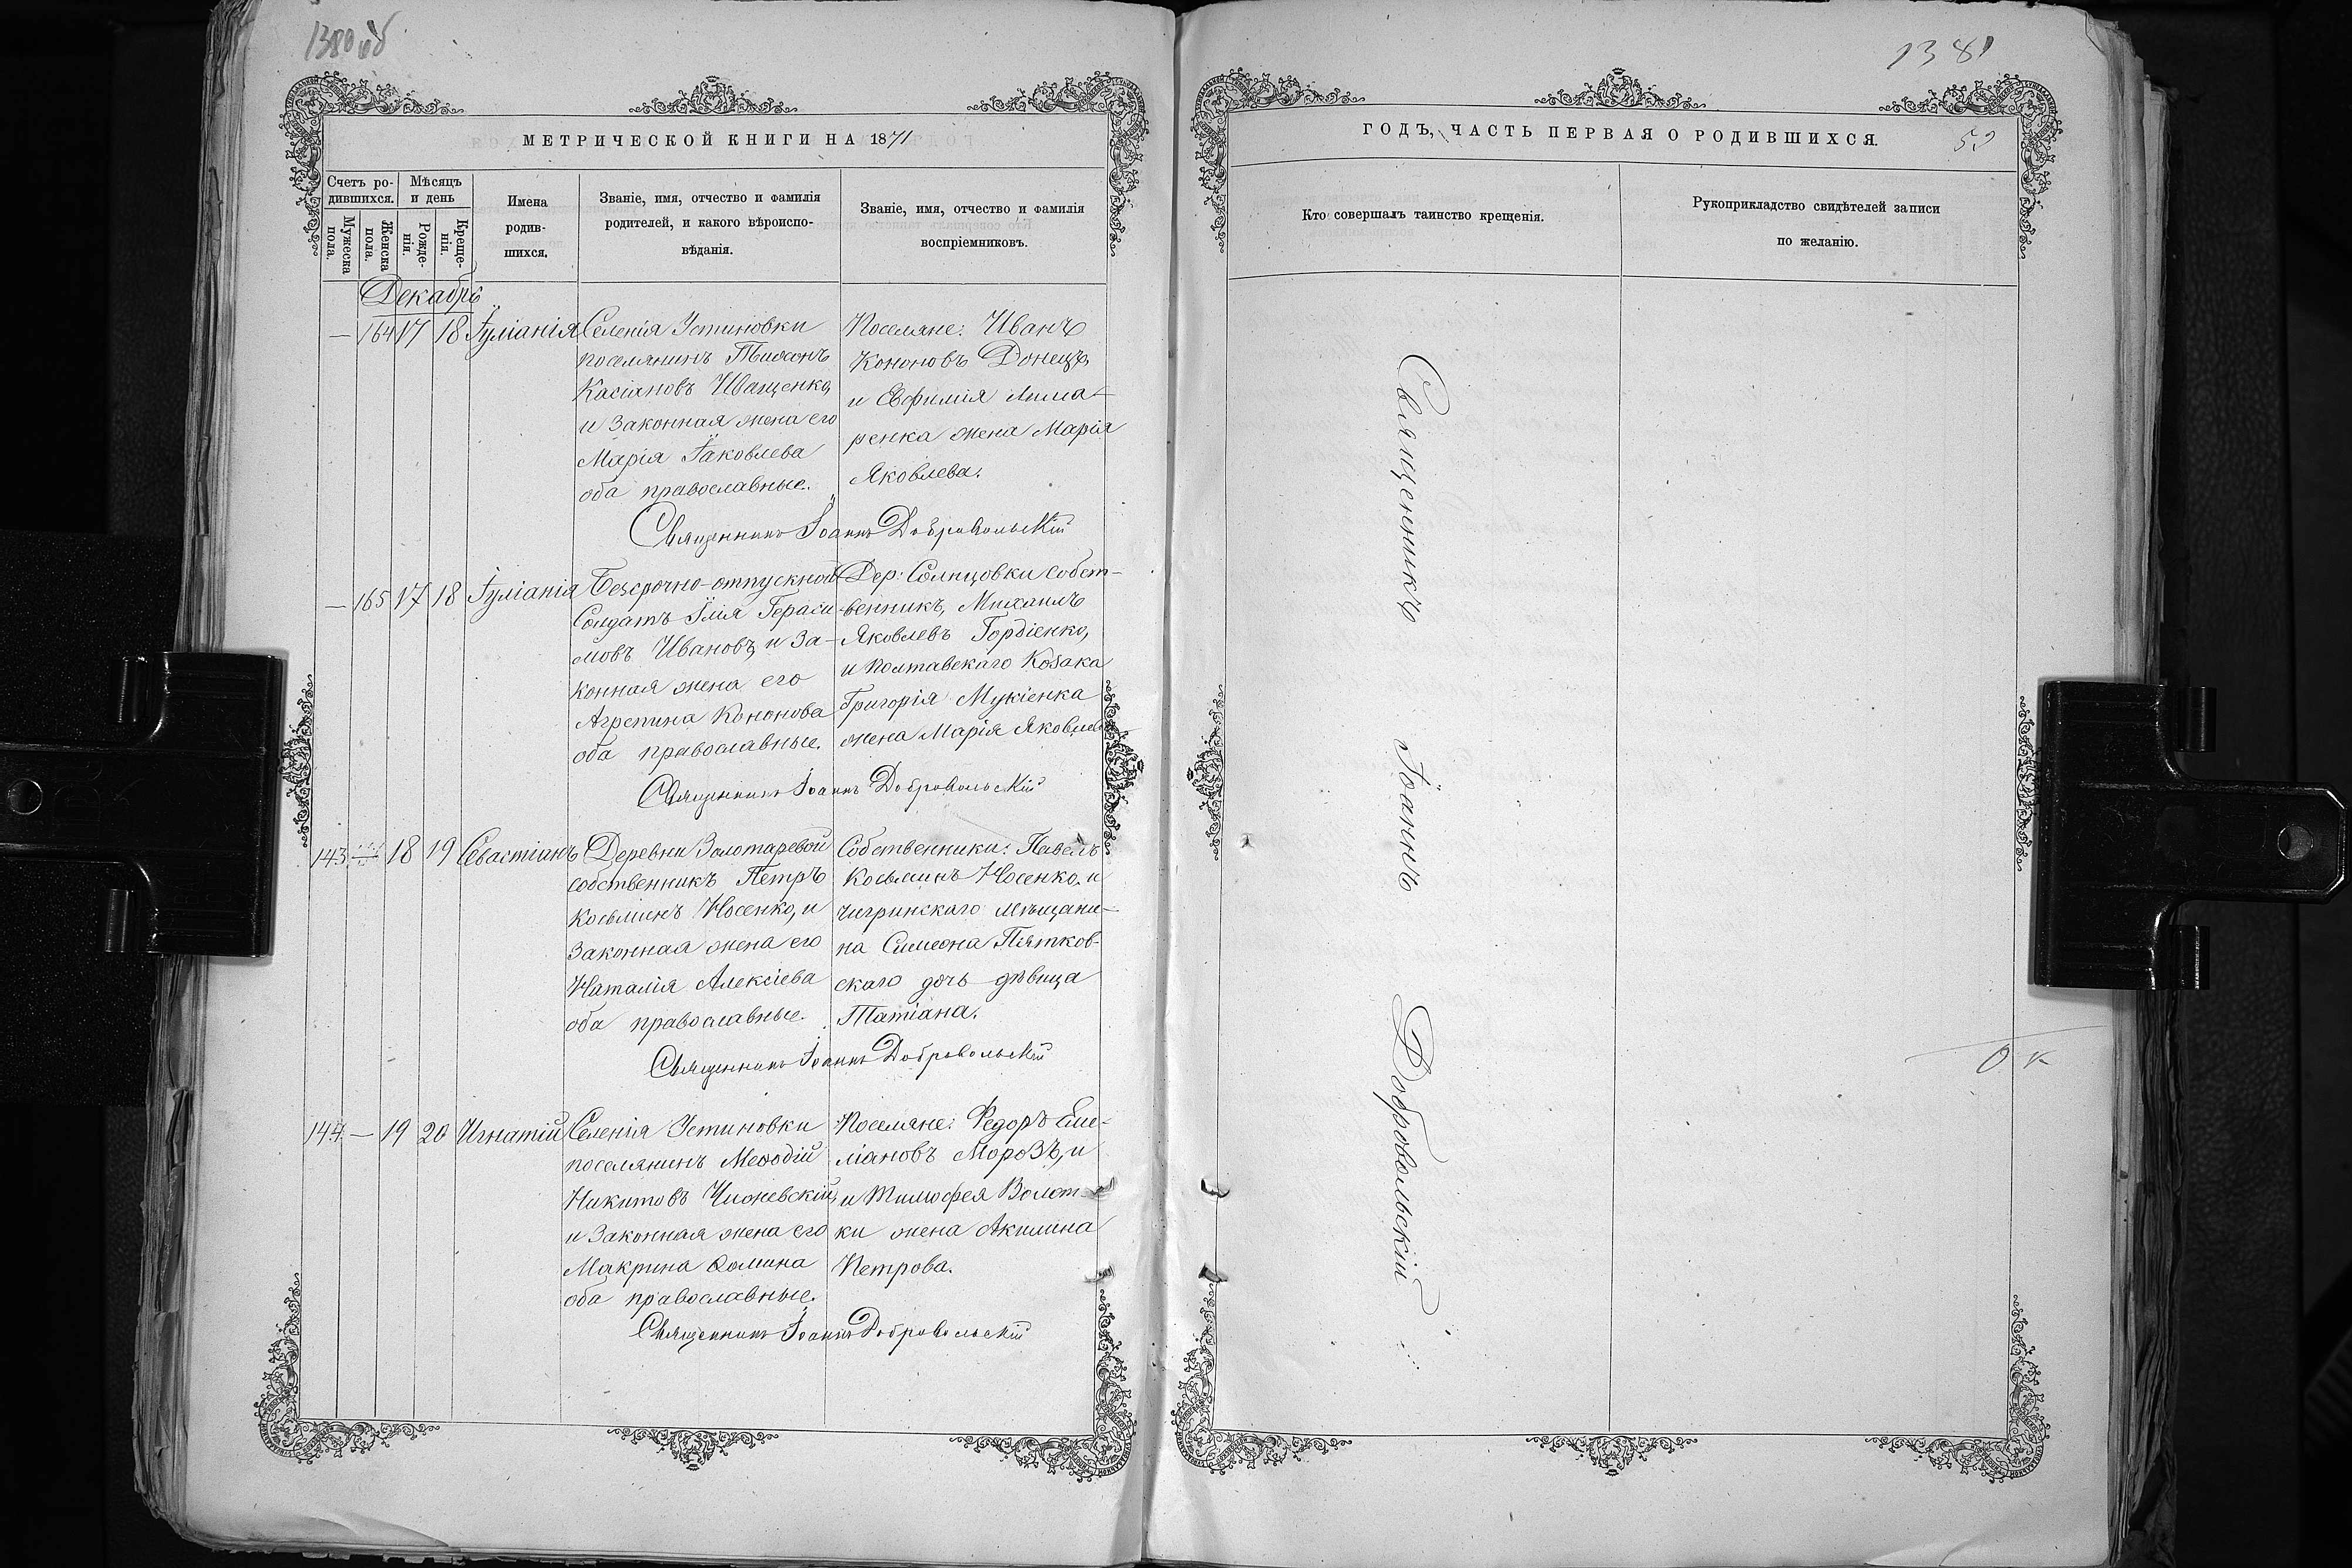 1380 об
МЕТРИЧЕСКОЙ КНИГИ НА 1871
Счетъ ро-
дившихся.
Мужеска
пола.
Женска
пола.
Мѣсяцъ
и день
Рожде-
нія.
Креще-
нія.
Имена
родив-
шихся.
Званіе, имя, отчество и фамилія
родителей, и какого вѣроиспо-
вѣданія.
Званіе, имя, отчество и фамилія
воспріемниковъ.
Декабрь
— 164 17 18 Іуліанія
Селенія Устиновки
поселянинъ Тихонъ
Касіановъ Иващенко,
и законная жена его
Марія Іаковлева
оба православные.
Поселяне: Иванъ
Кононовъ Донецъ,
и Евфимія Лима-
ренка жена Марія
Яковлева.
Священникъ Іоаннъ Добровольскій
— 165 17 18 Іуліанія
Безсрочно-отпускной
Солдатъ Илія Гераси-
мовъ Ивановъ, и за-
конная жена его
Агрепина Кононова
оба православные.
Дер: Солнцовки собст-
венникъ, Михаилъ
Яковлевъ Гордіенко,
и Полтавскаго Козака
Григорія Мукіенка
жена Марія Яковлева
Священникъ Іоаннъ Добровольскій
143 — 18 19 Севастіанъ
Деревни Золотаревой
собственникъ Петръ
Косьминъ Носенко, и
законная жена его
Наталія Алексіева
оба православные.
Собственники: Павелъ
Косьминъ Носенко, и
чигринскаго мѣщани-
на Симеона Пятков-
скаго дочь дѣвица
Татіана.
Священникъ Іоаннъ Добровольскій
144 — 19 20 Игнатій
Селенія Устиновки
поселянинъ Меѳодій
Никитовъ Чижевскій,
и законная жена его
Макрина Ѳомина
оба православные.
Поселяне: Федоръ Еме-
ліановъ Морозъ, и
и Тимофея Волот-
ки жена Акилина
Петрова.
Священникъ Іоаннъ Добровольскій
1381
ГОДЪ, ЧАСТЬ ПЕРВАЯ О РОДИВШИХСЯ.
Кто совершалъ таинство крещенія.
Рукоприкладство свидѣтелей записи
по желанію.
Священникъ Іоаннъ Добровольскій